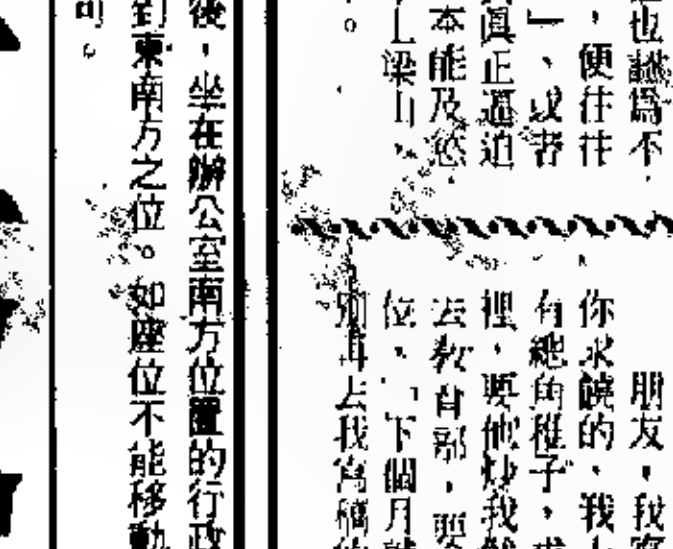 也認爲不
，便往往
」、或者
眞正逼迫
本能及慾
上梁山，
。
朋友，我
你求饒的，我
有總角稚子，
裡，要他炒我
去教育部，要
位，下個月
別再去我寫稿
後，坐在辦公室南方位置的行政
到東南方之位。如座位不能移動
可。